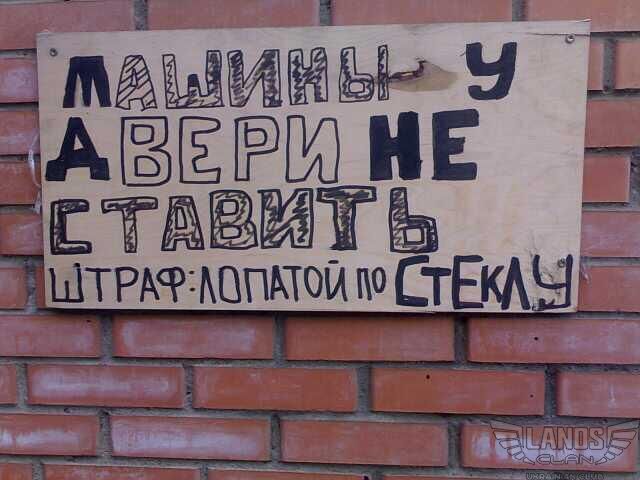 МАШИНЫ У
ДВЕРИ НЕ
СТАВИТЬ
ШТРАФ: ЛОПАТОЙ ПО СТЕКЛУ
LANOS
CLAN
UKRAINIAN CLUB